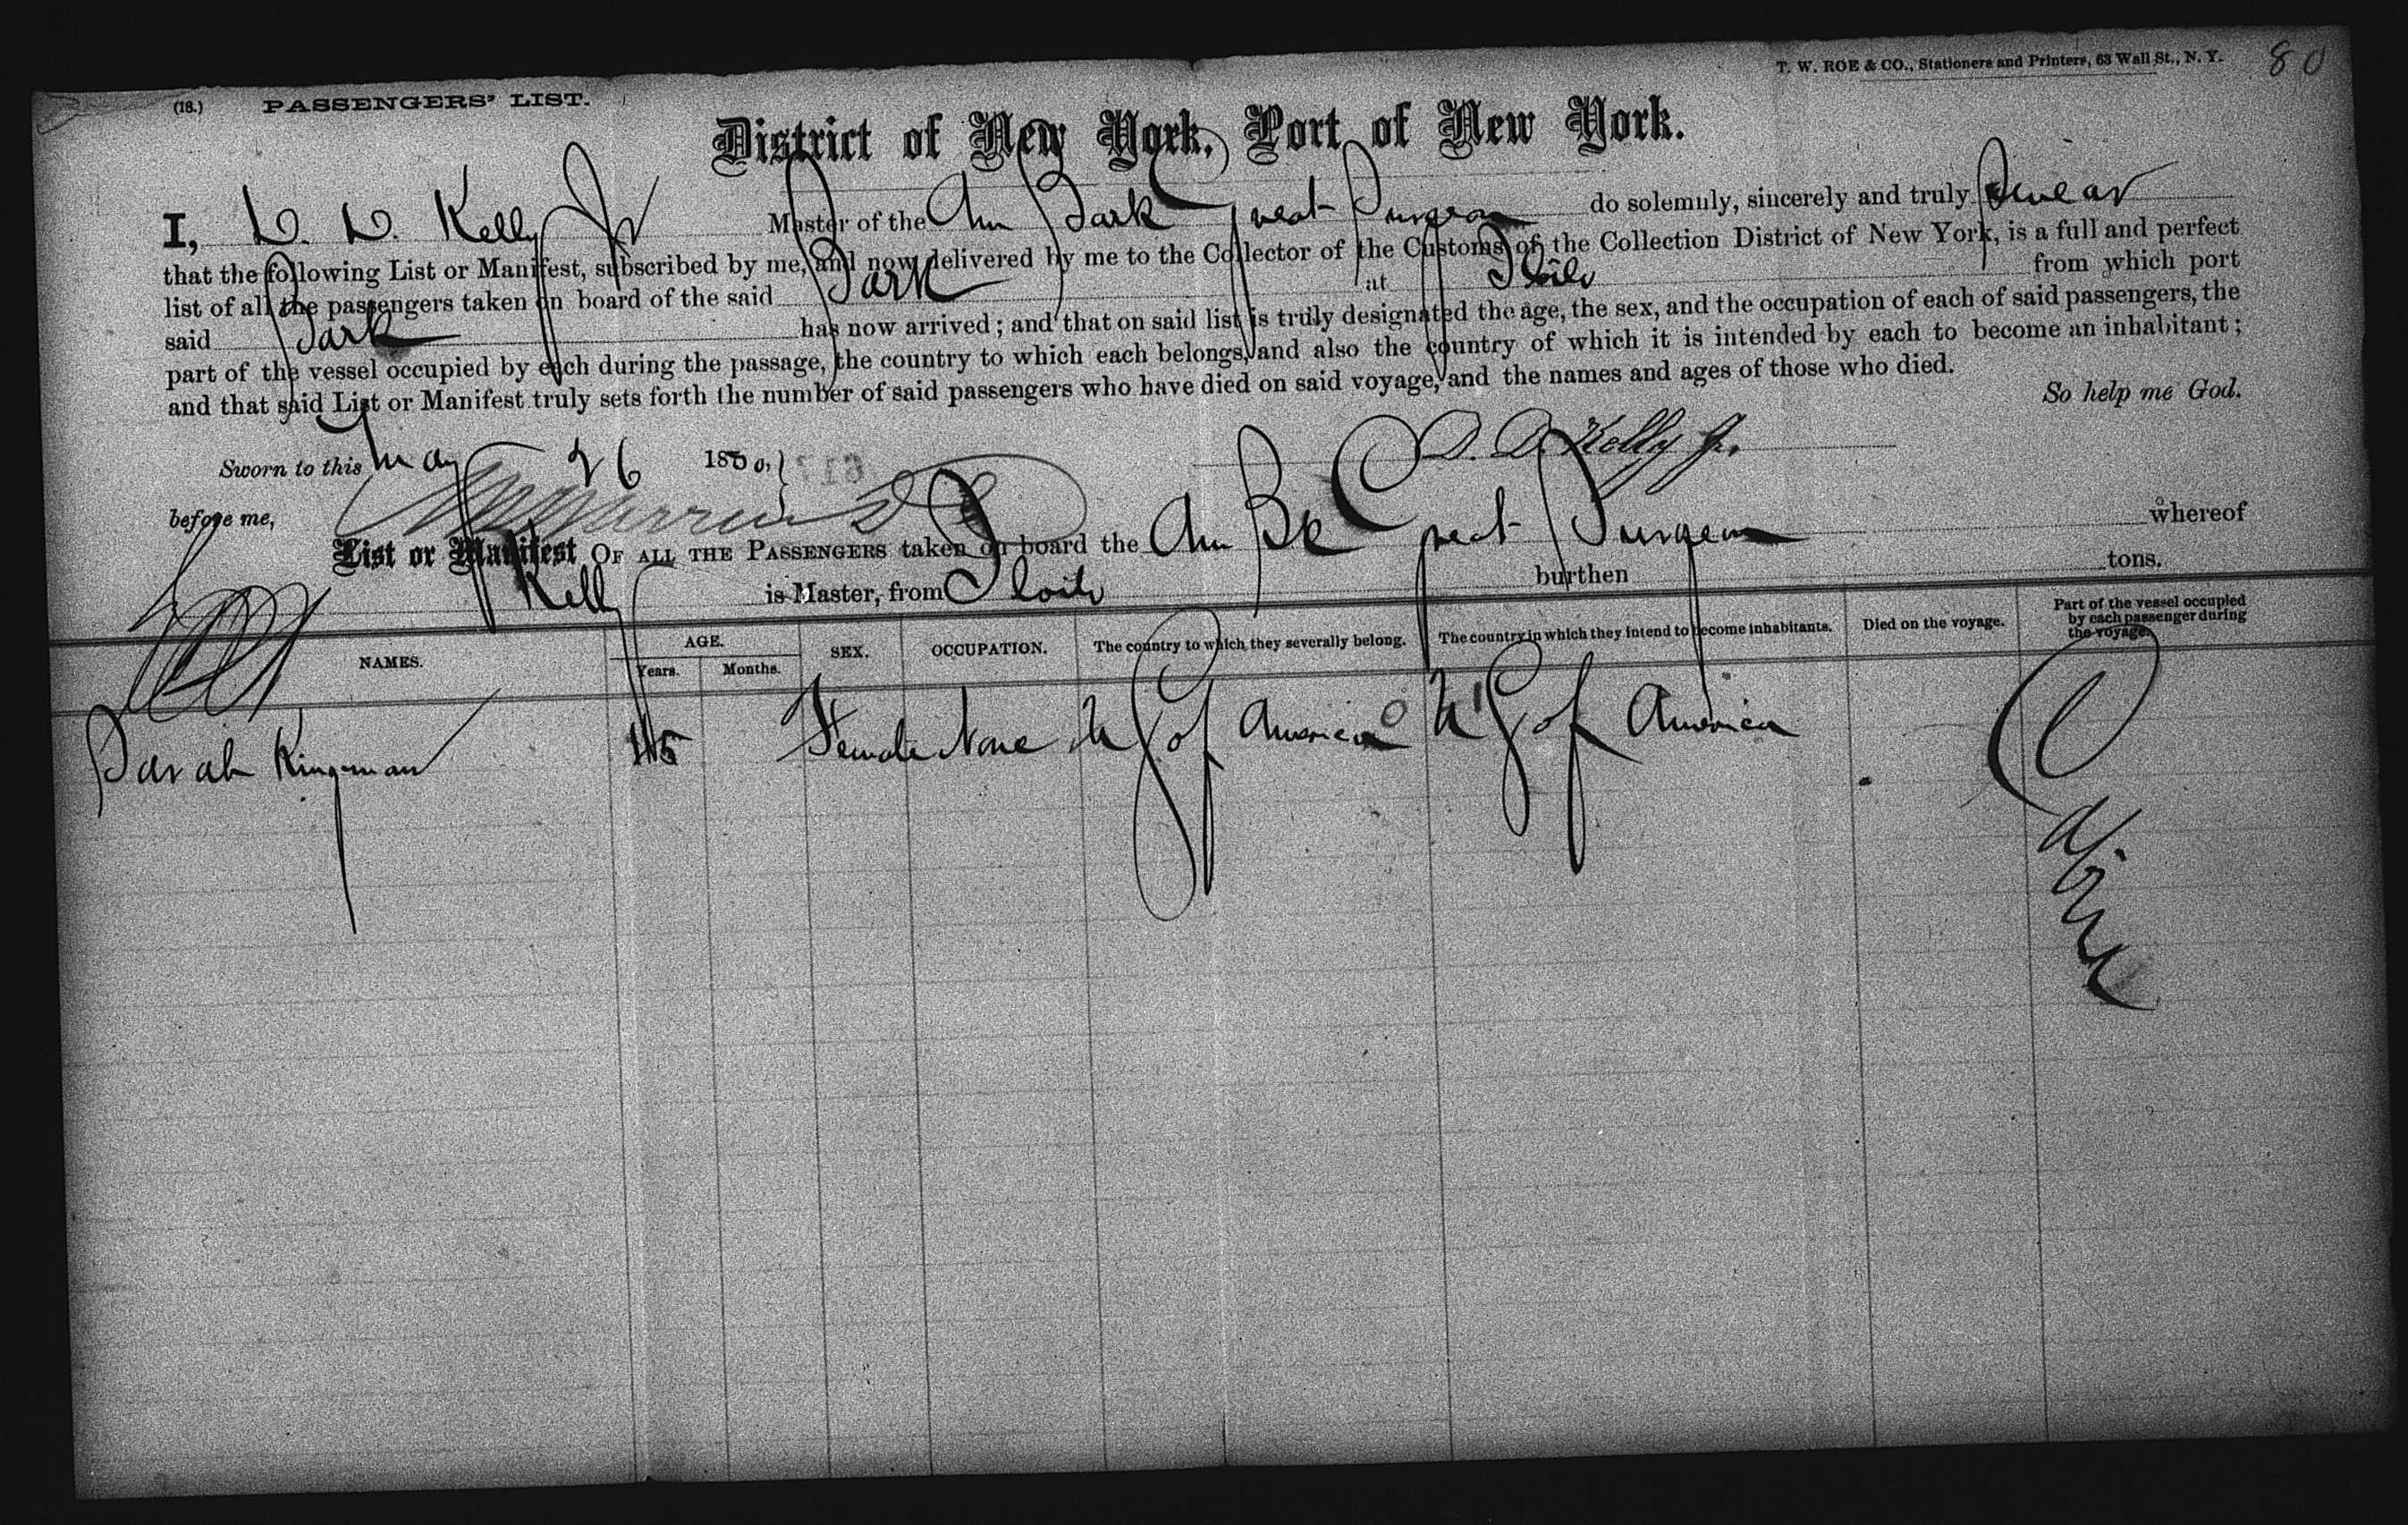 T. W. ROE & CO., Stationers and Printers, 63 Wall St., N. Y. 80
(18.) PASSENGERS' LIST.
District of New York, Port of New York.
I, D. D. Kelly Jr Master of the Am Bark Great Surgeon do solemnly, sincerely and truly Swear
that the following List or Manifest, subscribed by me, and now delivered by me to the Collector of the Customs of the Collection District of New York, is a full and perfect
list of all the passengers taken on board of the said Bark at Iloilo from which port
said Bark has now arrived; and that on said list is truly designated the age, the sex, and the occupation of each of said passengers, the
part of the vessel occupied by each during the passage, the country to which each belongs, and also the country of which it is intended by each to become an inhabitant;
and that said List or Manifest truly sets forth the number of said passengers who have died on said voyage, and the names and ages of those who died.
So help me God.
Sworn to this May 26 1880, D. D. Kelly Jr.
before me,
List or Manifest OF ALL THE PASSENGERS taken on board the Am Bk Great Surgeon whereof
Kelly is Master, from Iloilo burthen tons.
NAMES. AGE. Years. Months. SEX. OCCUPATION. The country to which they severally belong. The country in which they intend to become inhabitants. Died on the voyage. Part of the vessel occupied by each passenger during the voyage.
Sarah Kingman 45 Female None U S of America U S of America Cabin